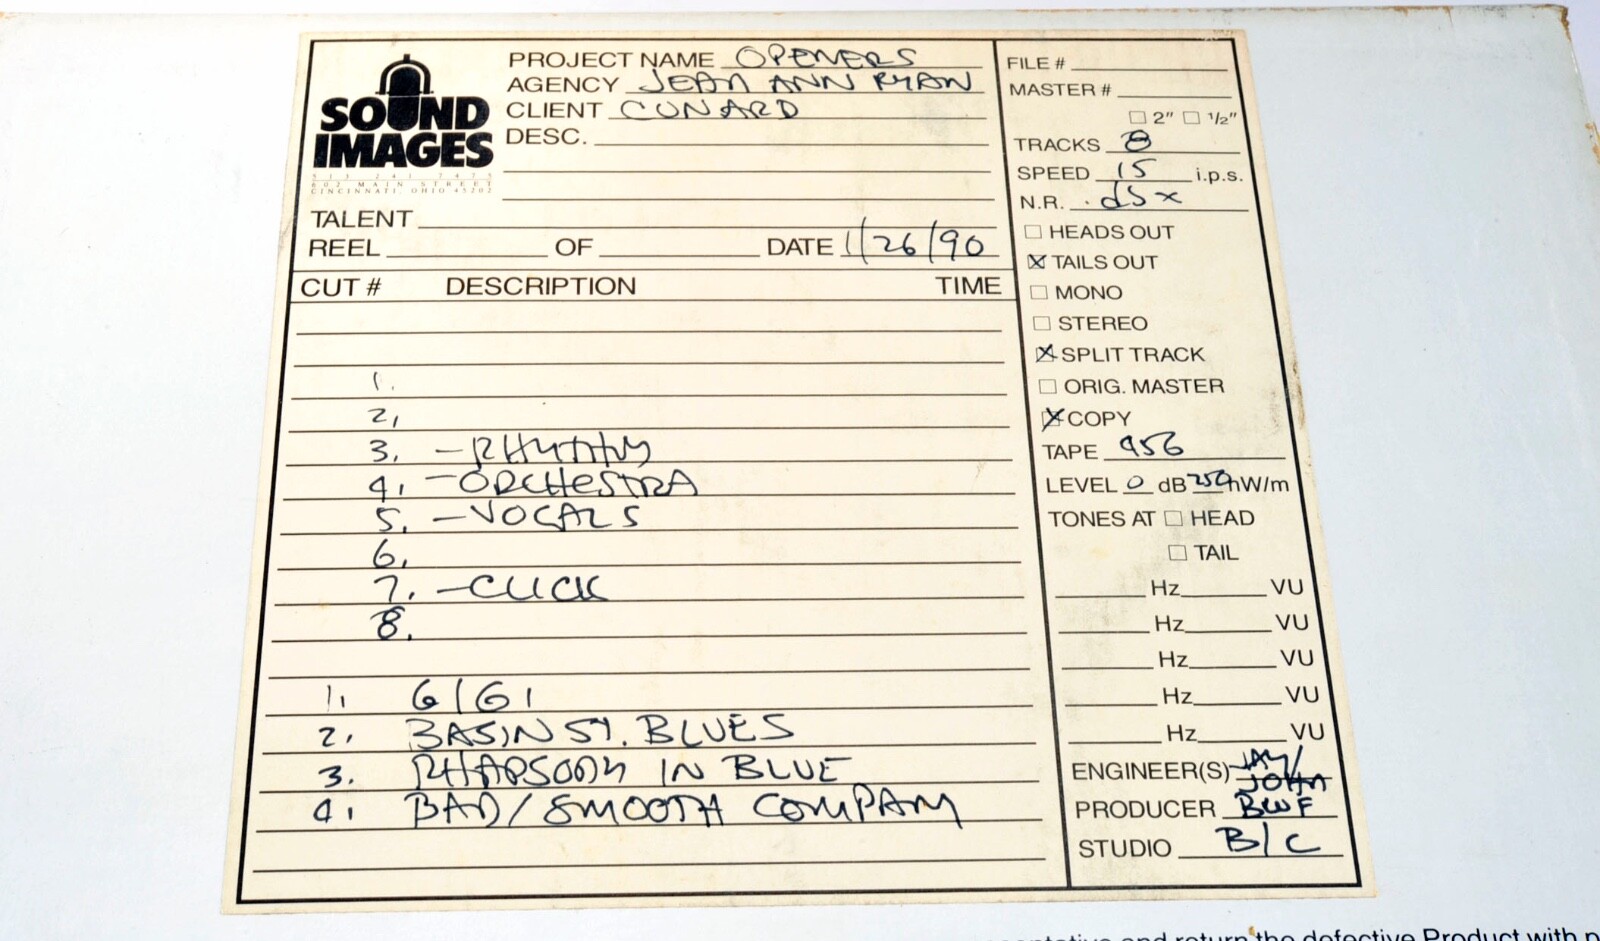 SOUND
IMAGES
513 241 7475
602 MAIN STREET
CINCINNATI, OHIO 45202
PROJECT NAME OPENERS
AGENCY JEAN ANN RYAN
CLIENT CUNARD
DESC.
TALENT
REEL OF DATE 1/26/90
CUT # DESCRIPTION TIME
1.
2,
3. - RHYTHM
4. - ORCHESTRA
5. - VOCALS
6.
7. - CLICK
8.
1. GIGI
2. BASIN ST. BLUES
3. RHAPSODY IN BLUE
4. BAD/SMOOTH COMPANY
FILE #
MASTER #
2" 1/2"
TRACKS 8
SPEED 15 i.p.s.
N.R. dbx
HEADS OUT
X TAILS OUT
MONO
STEREO
X SPLIT TRACK
ORIG. MASTER
X COPY
TAPE 456
LEVEL 0 dB 250 nW/m
TONES AT HEAD
TAIL
Hz VU
Hz VU
Hz VU
Hz VU
Hz VU
ENGINEER(S) JAY/
JOHN
PRODUCER
STUDIO B/C
and return the defective Product with